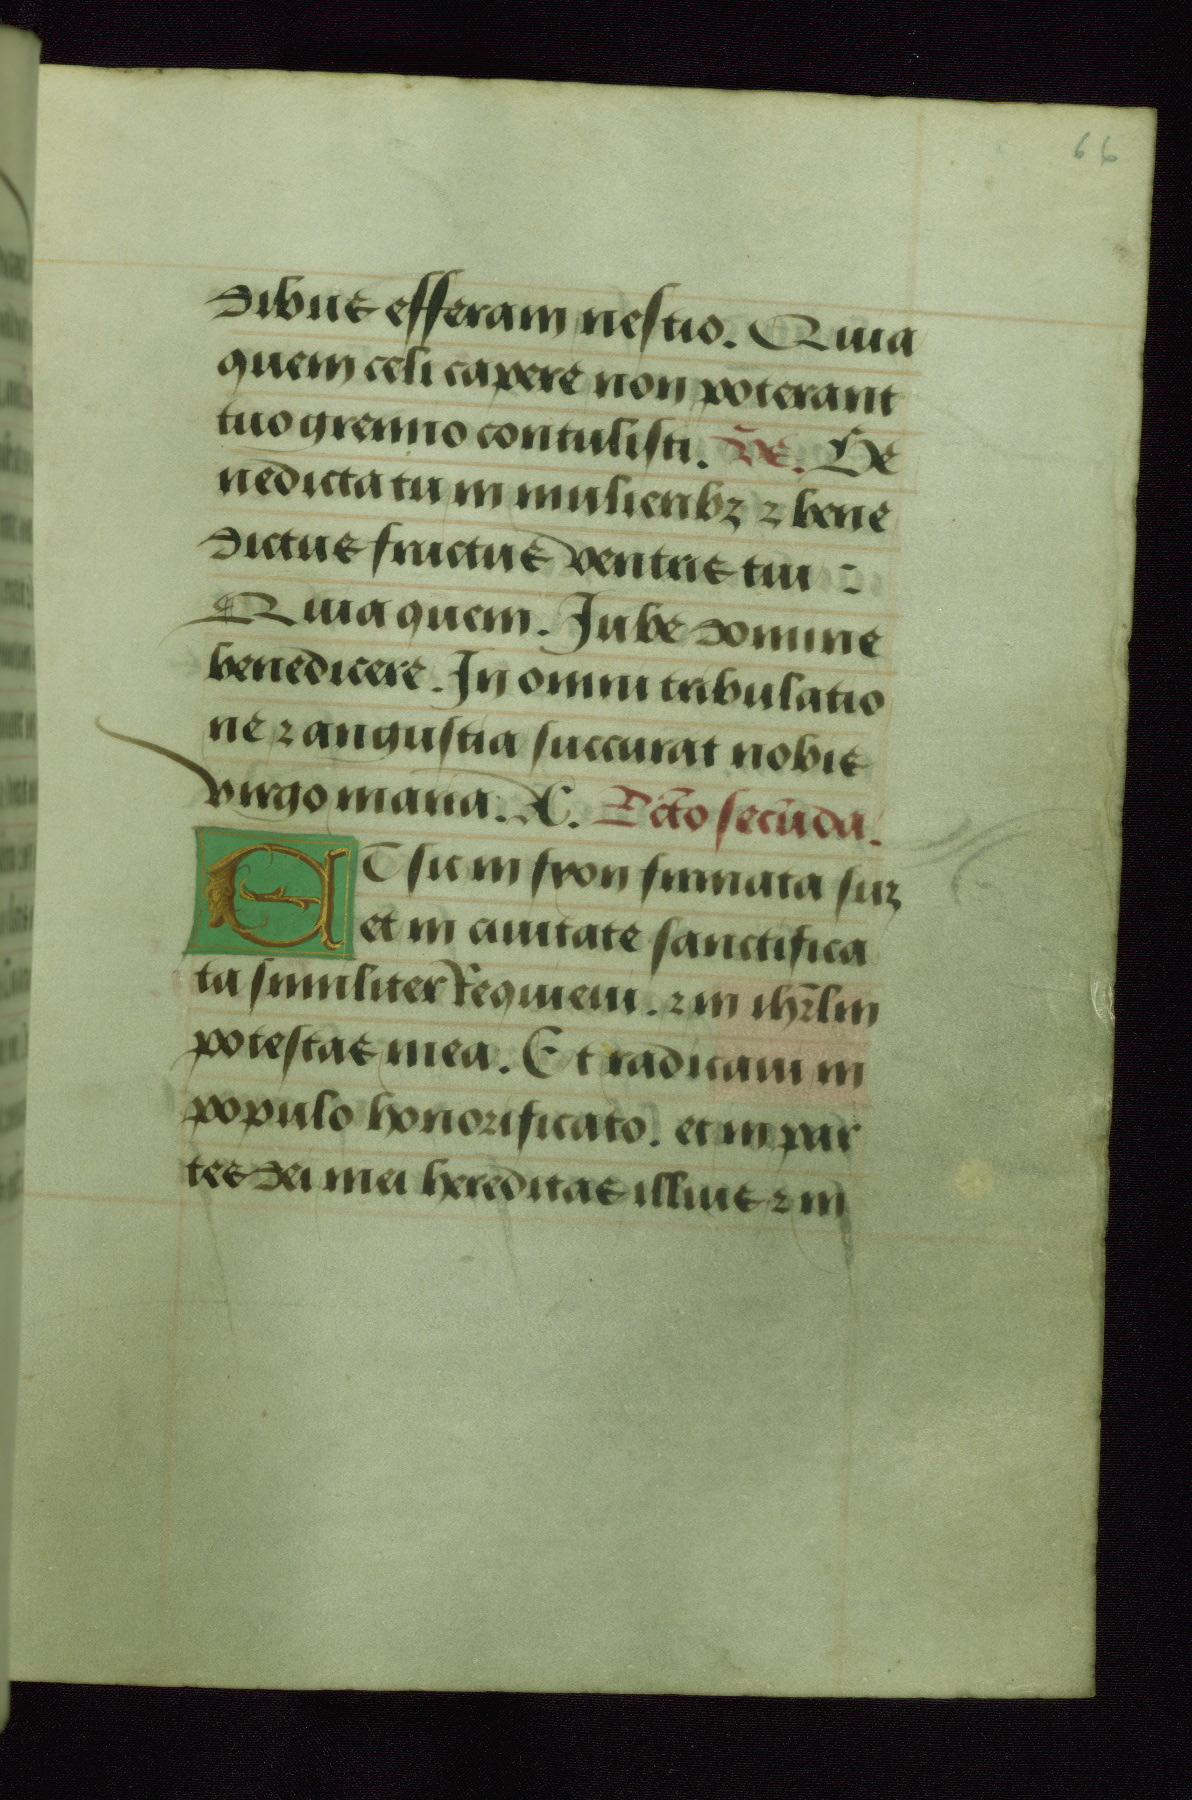 66
dibus efferam nestio. Quia
quem celi capere non poterant
tuo gremio contulisti. V̄s. Be
nedicta tu in mulieribꝫ ⁊ bene
dictus fructus ventris tui :
Quia quem. Jube domine
benedicere. In omni tribulatio
ne ⁊ angustia succurat nobis
virgo maria. A. Lc̄to secūda.
ET sic in syon firmata suꝫ
et in ciuitate sanctifica
ta similiter requieui. ⁊ in ihr̄lm
potestas mea. Et radicaui in
populo honorificato. et in par
tes dei mei hereditas illius ⁊ in